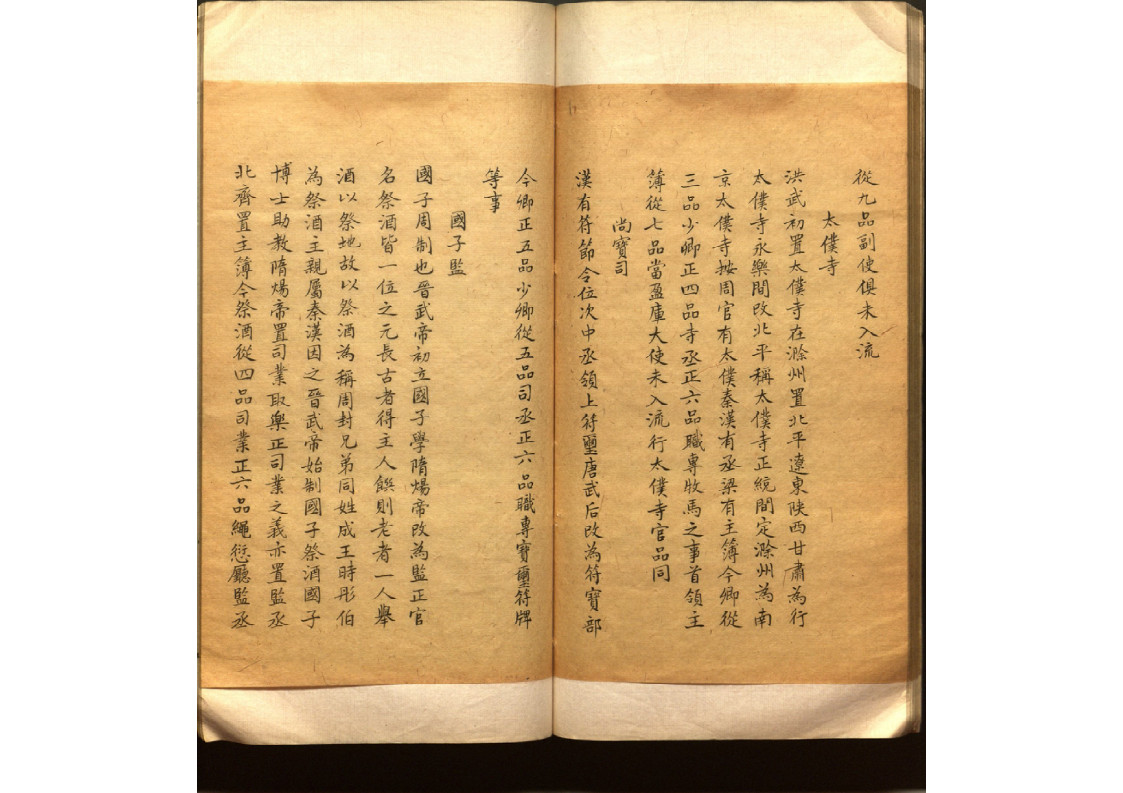 從九品副使俱未入流
太僕寺
洪武初置太僕寺在滁州置北平遼東陝西甘肅為行
太僕寺永樂間改北平稱太僕寺正統間定滁州為南
京太僕寺按周官有太僕秦漢有丞梁有主簿今卿從
三品少卿正四品寺丞正六品職專牧馬之事首領主
簿從七品當盈庫大使未入流行太僕寺官品同
尚寶司
漢有符節令位次中丞領上符璽唐武后改為符寶部
今卿正五品少卿從五品司丞正六品職專寶璽符牌
等事
國子監
國子周制也晉武帝初立國子學隋煬帝改為監正官
名祭酒皆一位之元長古者得主人饌則老者一人舉
酒以祭地故以祭酒為稱周封兄弟同姓成王時彤伯
為祭酒主親屬秦漢因之晉武帝始制國子祭酒國子
博士助教隋煬帝置司業取樂正司業之義亦置監丞
北齊置主簿今祭酒從四品司業正六品繩愆廳監丞